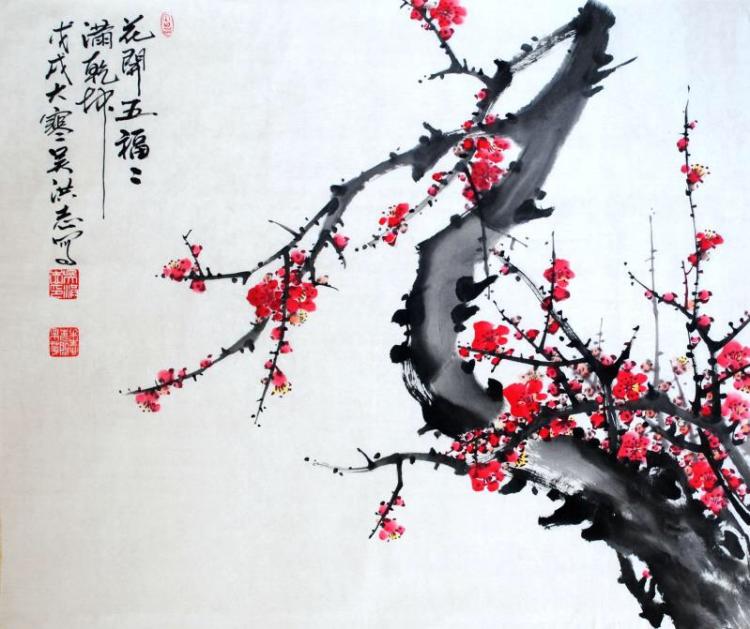 花開五福〻
滿乾坤
戊戌大寒吴洪志写